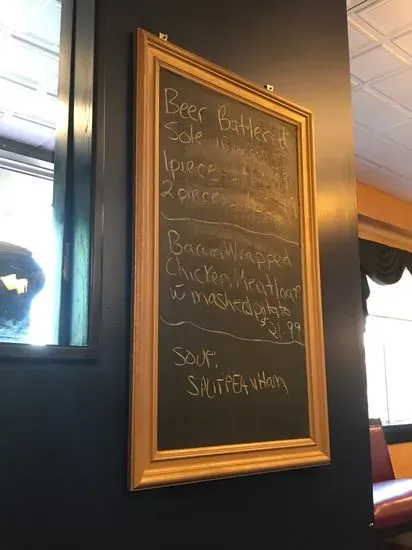 Beer Battered
Sole
1 piece
2 piece
Bacon Wrapped
Chicken Meatloaf
w mashed potato
$21.99
SOUP:
SPLIT PEA & Ham